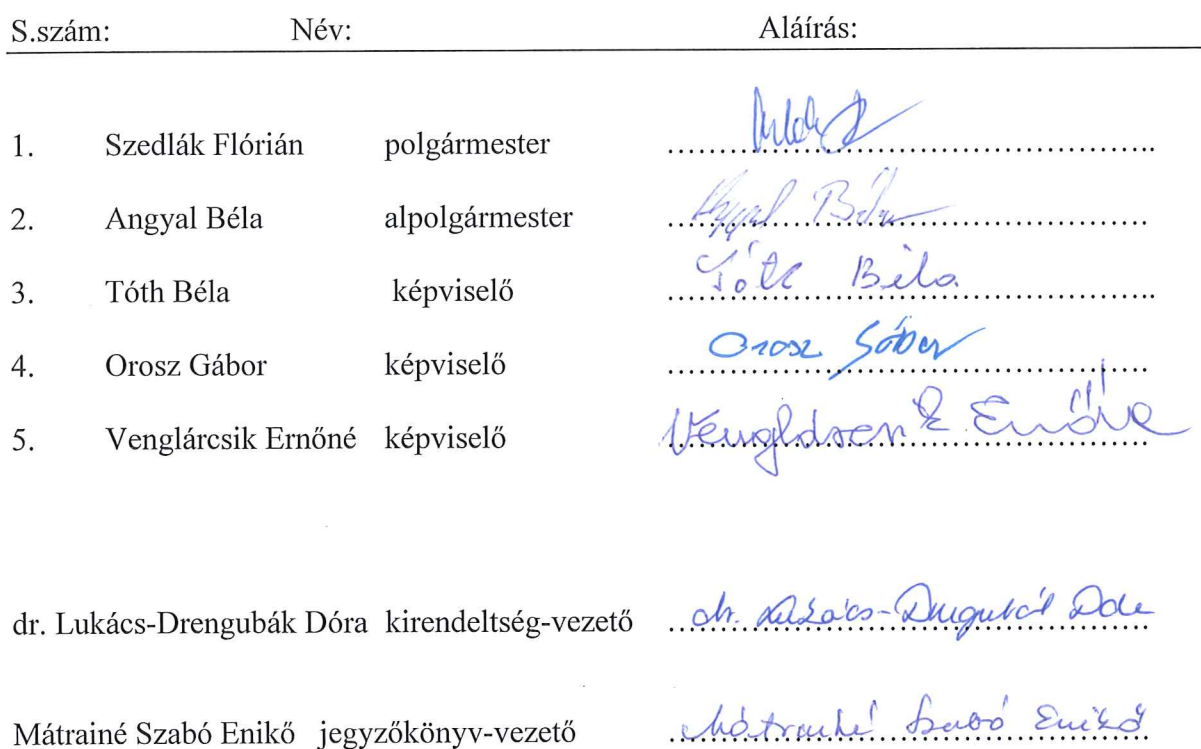 S.szám: Név: Aláírás:
1. Szedlák Flórián polgármester
2. Angyal Béla alpolgármester Angyal Béla
3. Tóth Béla képviselő Tóth Béla
4. Orosz Gábor képviselő Orosz Gábor
5. Venglárcsik Ernőné képviselő Ernőné
dr. Lukács-Drengubák Dóra kirendeltség-vezető dr. Lukács-Drengubák Dóra
Mátrainé Szabó Enikő jegyzőkönyv-vezető Mátrainé Szabó Enikő